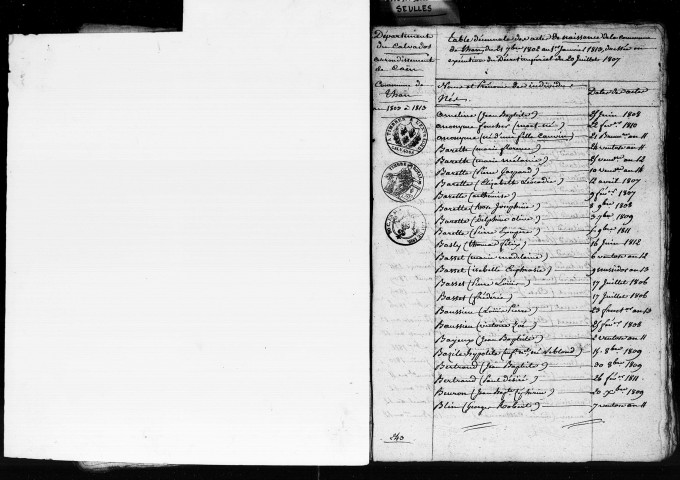 SEULLES
Département
du Calvados
arrondissement
de Caën
Commune de
Thaon
an 1803 à 1813
table décennale des actes de naissance de la commune
de Thaon, du 1er janvier 1813, dressée en
exécution du Décret impérial du 20 Juillet 1807
Noms et Prénoms des individus
Nés
Dates des actes
(Jean Baptiste) 25 Juin 1808
anonyme (mort né) 1810
anonyme (né d'une fille Cauvin) 21 Brum. an 11
Barette (marie florence) 24 ventose an 11
Barette (marie mélanie) 25 vend. an 12
Barette (Pierre Gaspard) 10 vend. an 14
Barette (Elizabeth Léocadie) 12 avril 1807
Barette 9 fév. 1807
Barette (Rose Joséphine) 8 9bre 1808
Barette (Delphine aline) 3 7bre 1809
Barette (Pierre) 9bre 1811
Basly (thomas félix) 16 Juin 1812
Basset (marie madelaine) 6 ventose an 12
Basset (isabelle Euphrasie) 9 messidor an 13
Basset (Pierre Louis) 17 Juillet 1806
Basset (frédéric) 17 Juillet 1806
Baussieu (Louis Pierre) 23 an 13
Baussieu (victoire Zoé) 25 fév. 1808
Bayeux (Jean Baptiste) 2 ventose an 11
Bazile hyppolite Leblond) 15 8bre 1809
Bertrand (Jean Baptiste) 30 8bre 1809
Bertrand (Paul désiré) 26 fév. 1811
Beuron (Jean Bapte Ephrem) 20 Xbre 1809
Blin (George Robert) 7 ventose an 11
240